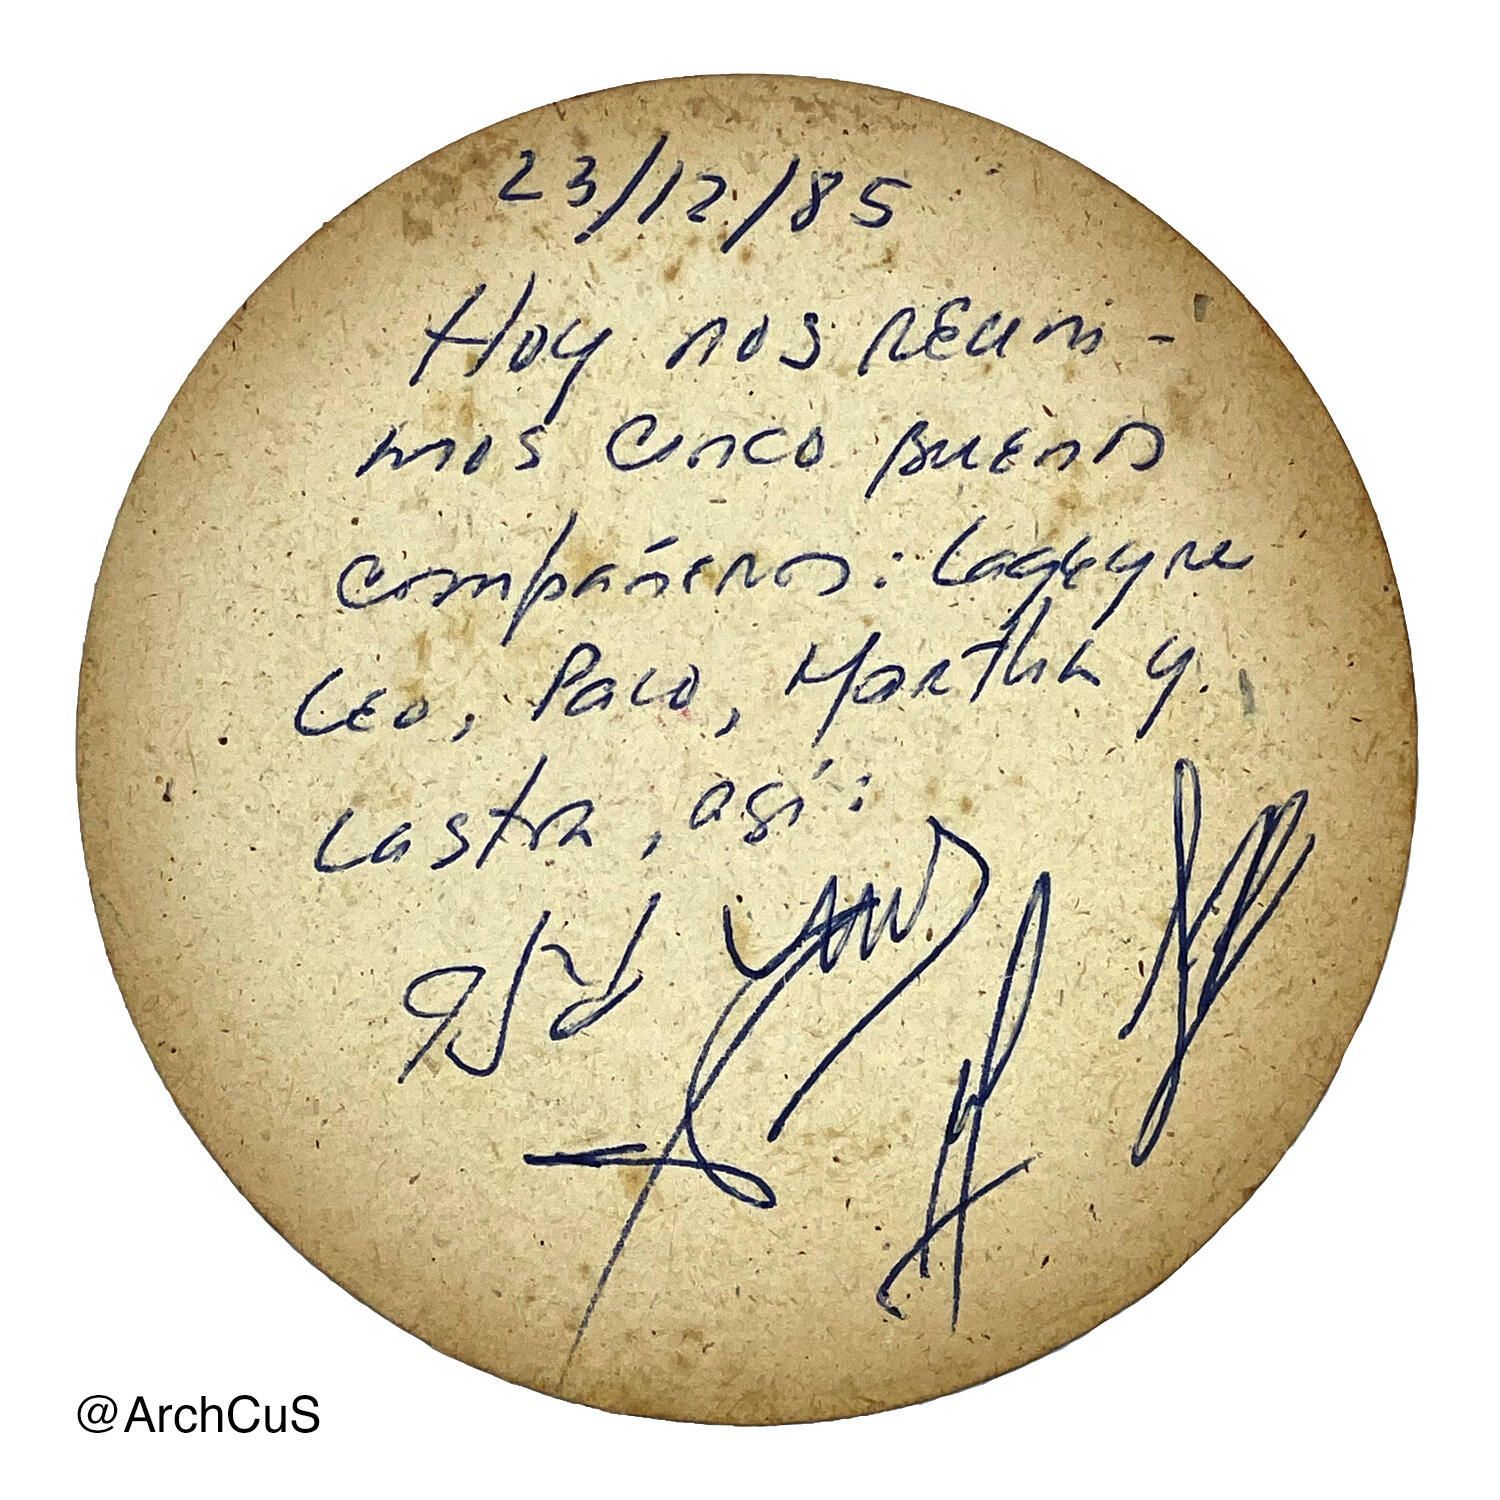 23/12/85
Hoy nos reuni-
mos cinco buenos
compañeros:
Leo, Paco, Martha y
Lastra, así:
@ArchCuS